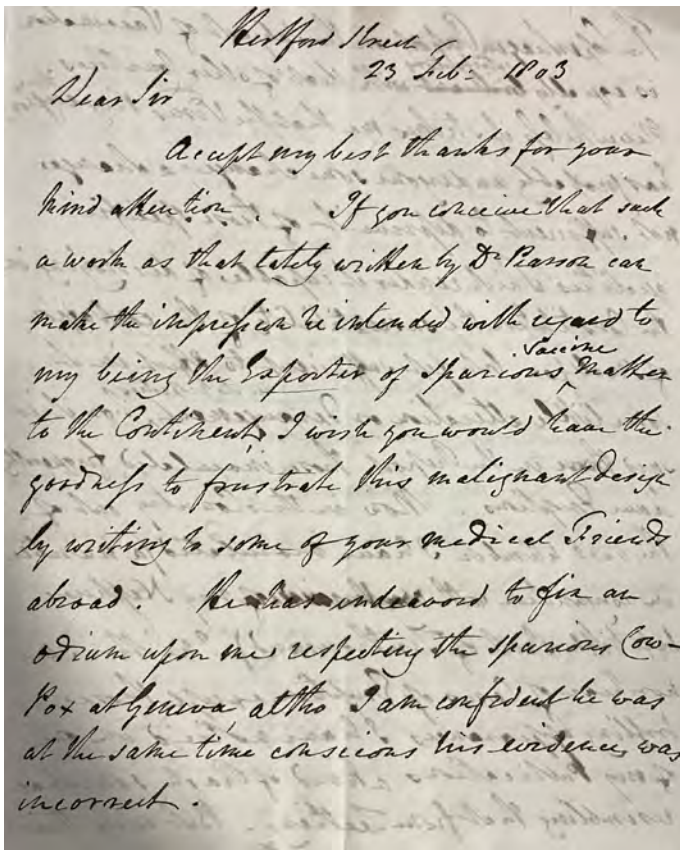 Hertford Street
23 Feb: 1803
Dear Sir
Accept my best thanks for your
kind attention. If you conceive that such
a work as that lately written by Dr Pearson can
make the impression he intended with regard to
my being the Exporter of Spurious Vaccine Matter
to the Continent, I wish you would have the
goodness to frustrate this malignant design
by writing to some of your medical Friends
abroad. He has endeavord to fix an
odium upon me respecting the spurious Cow-
Pox at Geneva, altho I am confident he was
at the same time conscious his evidence was
incorrect.